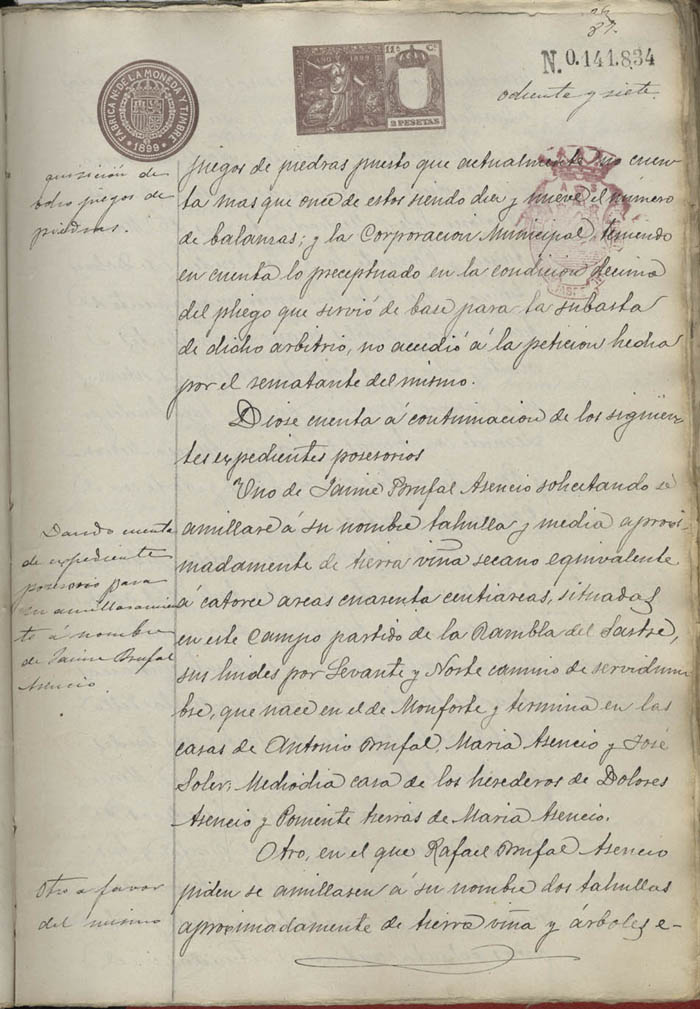 87.
N. 0.141.834
ochenta y siete.
FÁBRICA NAL DE LA MONEDA Y TIMBRE
1899
11ª Cª
1899
2 PESETAS
quisición de
ocho juegos de
piedras.
juegos de piedras puesto que actualmente no cuen-
ta mas que once de estos siendo diez y nueve el número
de balanzas; y la Corporacion Municipal teniendo
en cuenta lo preceptuado en la condicion decima
del pliego que servió de base para la subasta
de dicho arbitrio, no accedió á la peticion hecha
por el rematante del mismo.
Diose cuenta á continuacion de los siguien-
tes expedientes posesorios
Uno de Jaime Brufal Asencio solicitando se
amillare á su nombre tahulla y media aproxi-
madamente de tierra viña secano equivalente
á catorce areas cuarenta centiareas, situadas
en este Campo partido de la Rambla del Sastre,
sus lindes por Levante y Norte camino de servidum-
bre, que nace en el de Monforte y termina en las
casas de Antonio Brufal, Maria Asencio y José
Soler; Mediodia casa de los herederos de Dolores
Asencio y Poniente tierras de Maria Asencio.
Dando cuenta
de expediente
posesorio para
su amillaramien
to á nombre
de Jaime Brufal
Asencio.
Otro, en el que Rafael Brufal Asencio
piden se amillasen á su nombre dos tahullas
aproximadamente de tierra viña y árboles e-
Otro a favor
del mismo